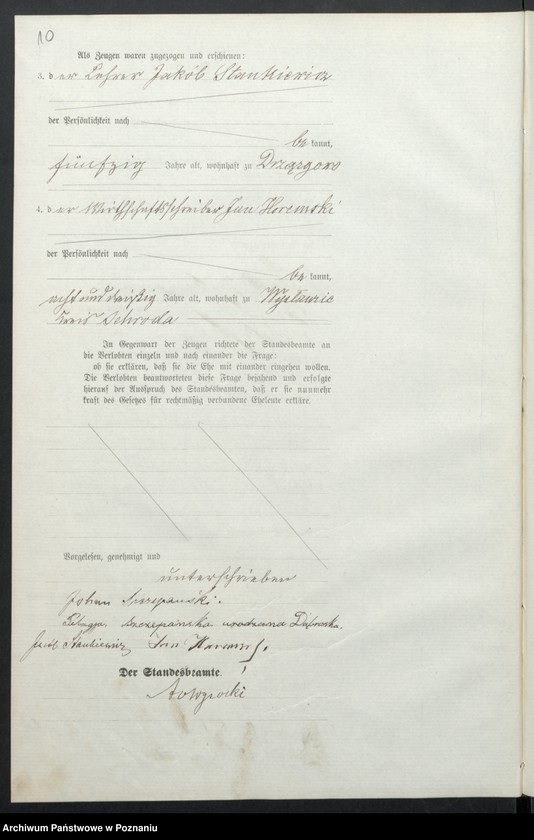 10
Als Zeugen waren zugezogen und erschienen:
3. der Lehrer Jakób Stankiewicz
der Persönlichkeit nach
be kannt,
fünfzig Jahre alt, wohnhaft zu Drzązgowo
4. der Wirthschaftsschreiber Jan Horemski
der Persönlichkeit nach
be kannt,
acht und dreißig Jahre alt, wohnhaft zu
Kreis Schroda
In Gegenwart der Zeugen richtete der Standesbeamte an
die Verlobten einzeln und nach einander die Frage:
ob sie erklären, daß sie die Ehe mit einander eingehen wollen.
Die Verlobten beantworteten diese Frage bejahend und erfolgte
hierauf der Ausspruch des Standesbeamten, daß er sie nunmehr
kraft des Gesetzes für rechtmäßig verbundene Eheleute erkläre.
Vorgelesen, genehmigt und
unterschrieben
Johan Szczepański.
Pelagja Szczepańska urodzona
Jacób Stankiewicz Jan
Der Standesbeamte.
Archiwum Państwowe w Poznaniu